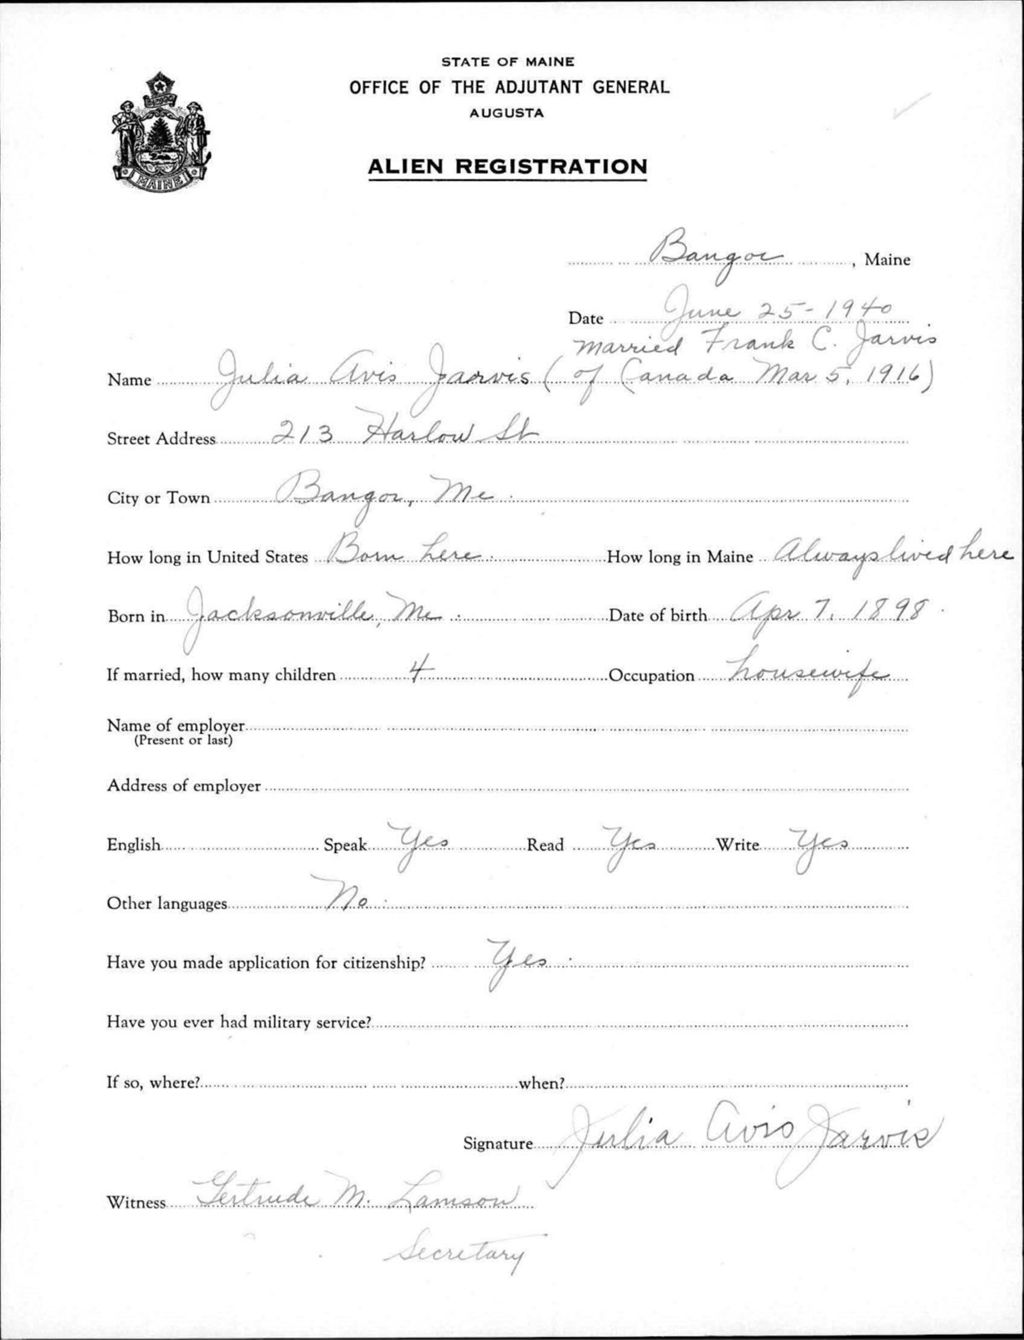 STATE OF MAINE
OFFICE OF THE ADJUTANT GENERAL
AUGUSTA
ALIEN REGISTRATION
MAINE
Bangor, Maine
Date June 25-1940
Married Frank C. Jarvis
Name Julia Avis Jarvis (of Canada Mar 5, 1916)
Street Address 213 Harlow St
City or Town Bangor, Me.
How long in United States Born here. How long in Maine Always lived here
Born in Jacksonville, Me. Date of birth Apr 7, 1898.
If married, how many children 4 Occupation housewife
Name of employer
(Present or last)
Address of employer
English Speak Yes Read Yes Write Yes
Other languages No.
Have you made application for citizenship? Yes.
Have you ever had military service?
If so, where? when?
Signature Julia Avis Jarvis
Witness Gertrude M. Lamson
Secretary